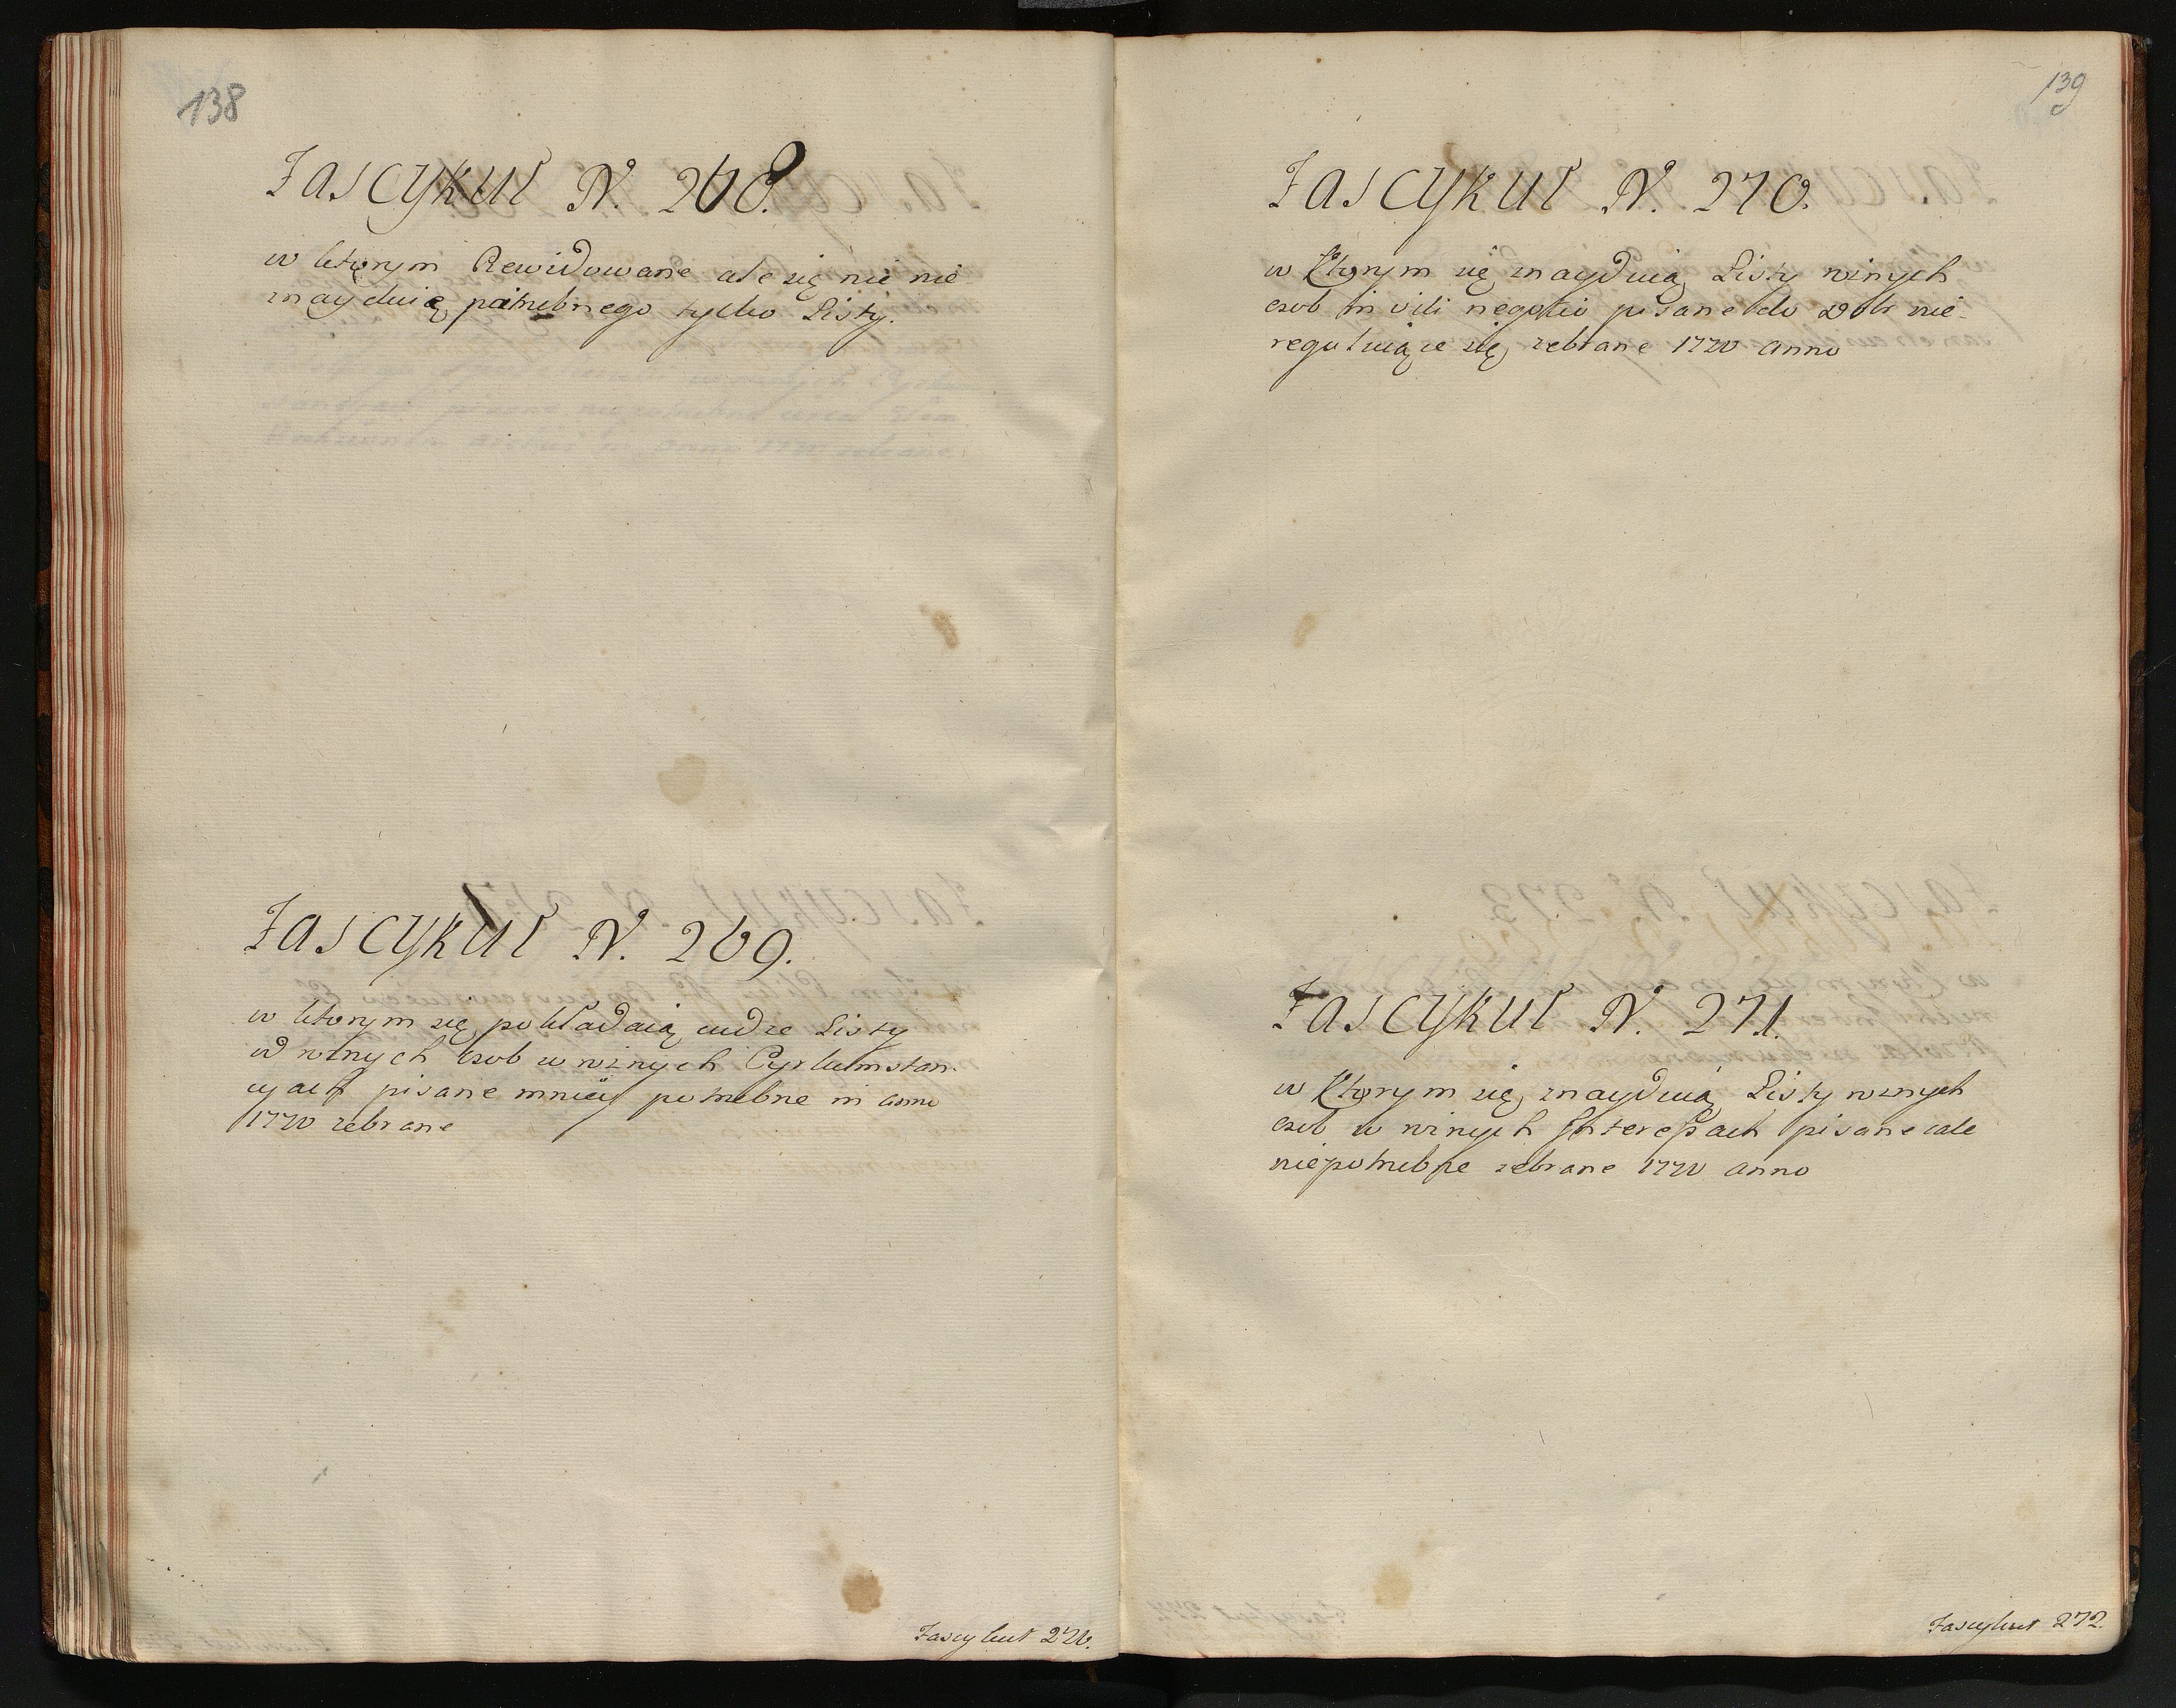 138
Fascykuł N. 268.
w ktorym Rewidowane ale się nic nie
znayduię potrzebnego tylko Listy.
Fascykuł N. 269.
w ktorym się pokładaią cudze Listy
od roznych osob w roznych Cyrkumstan-
cyach pisane mniey potrzebne in anno
1770 zebrane
Fascykuł 270.
139
Fascykuł N. 270.
w ktorym się znayduią Listy roznych
osob in vili negotio pisane do Dobr nie
reguluiące się zebrane 1770 anno
Fascykuł N. 271.
w ktorym się znayduią Listy roznych
osob w roznych Interessach pisane cale
niepotrzebne zebrane 1770 anno
Fascykuł 272.